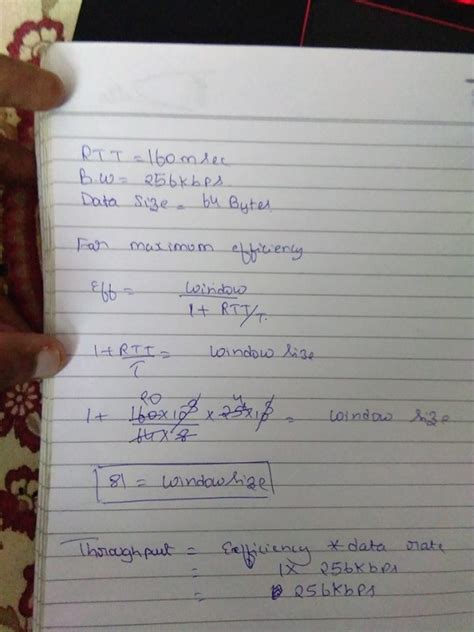 RTT = 160 msec
B.W = 256 kbps
Data Size = 64 Bytes
For maximum efficiency
Eff = window / 1 + RTT/T.
1 + RTT/T = window size
1 + 160×10⁻³ / 64×8 × 256×10³ = window size
20 4
81 = window size
Throughput = Efficiency * data rate
= 1 × 256 kbps
= 256 kbps